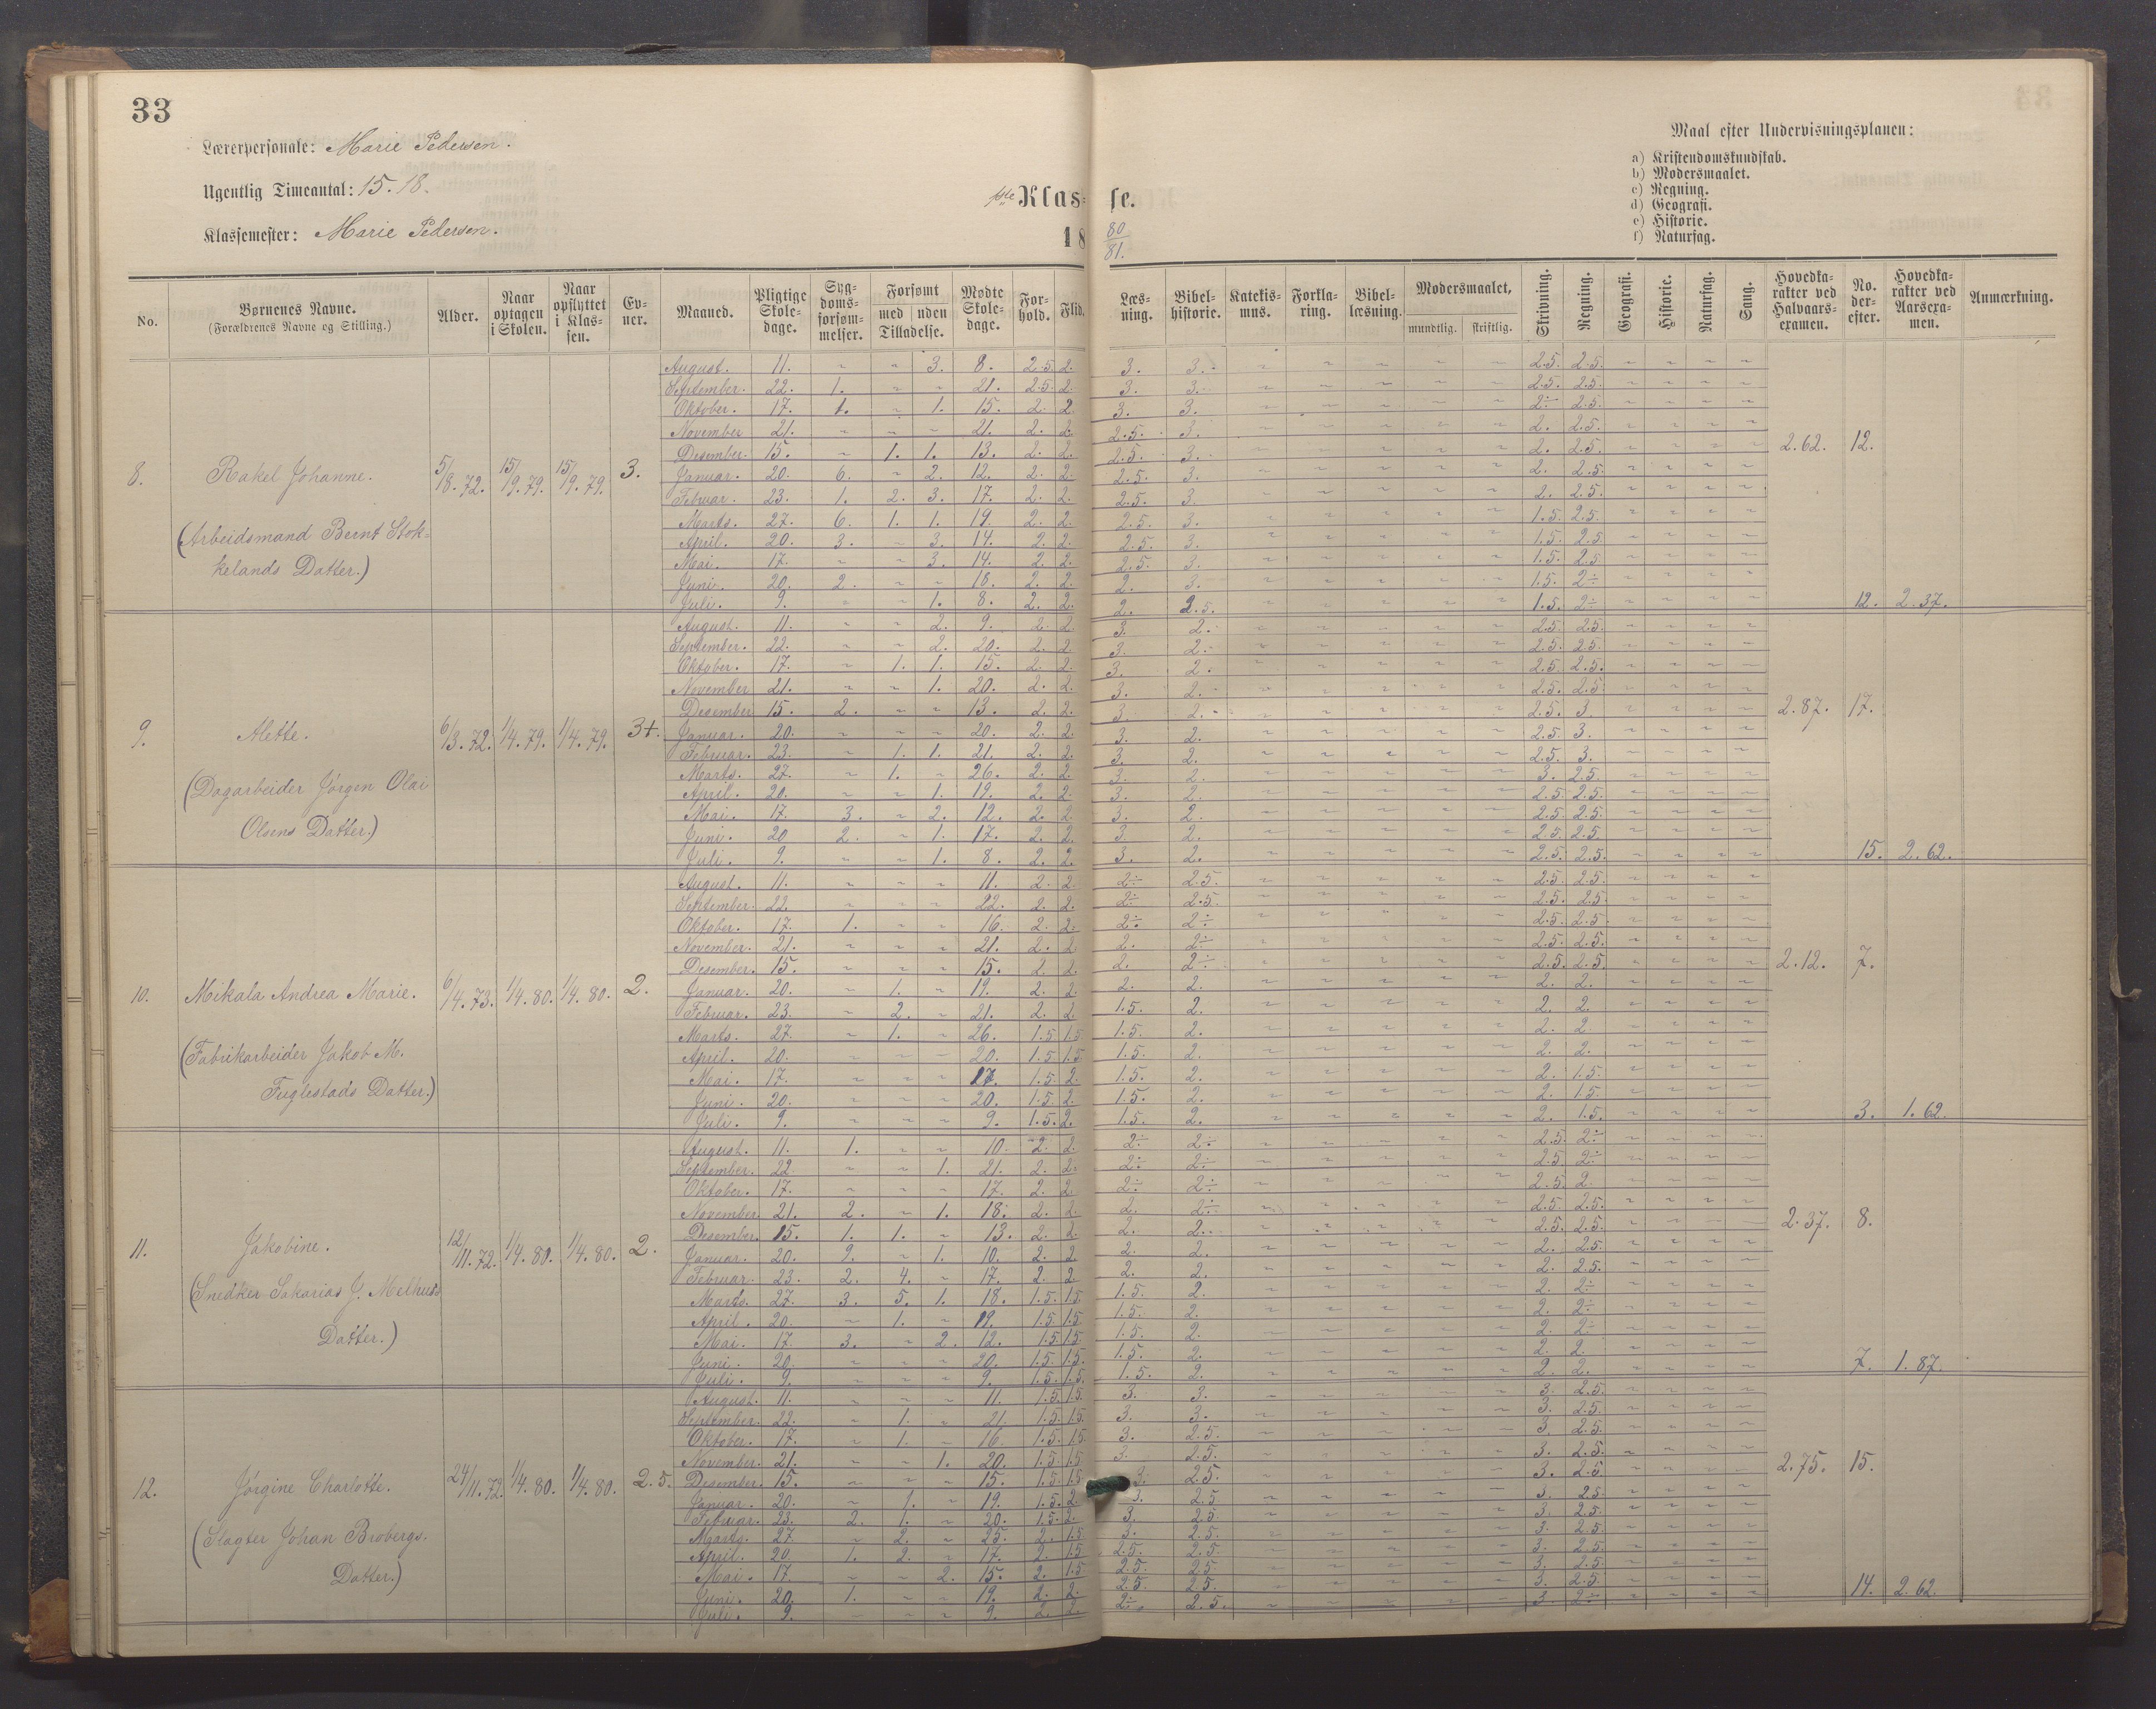 33
Lærerpersonale: Marie Pedersen.
Ugentlig Timeantal: 15. 18.
Klassemester: Marie Pedersen.
1ste Klas- se.
18 80/81.
Maal efter Undervisningsplanen:
a) Kristendomskundskab.
b) Modersmaalet.
c) Regning.
d) Geografi.
e) Historie.
f) Naturfag.
No. | Børnenes Navne. (Forældrenes Navne og Stilling.) | Alder. | Naar optagen i Skolen. | Naar opflyttet i Klassen. | Evner. | Maaned. | Pligtige Skoledage. | Sygdomsforsømmelser. | Forsømt med / uden Tilladelse. | Mødte Skoledage. | Forhold. | Flid. | Læsning. | Bibelhistorie. | Katekismus. | Forklaring. | Bibellæsning. | Modersmaalet, mundtlig. skriftlig. | Skrivning. | Regning. | Geografi. | Historie. | Naturfag. | Sang. | Hovedkarakter ved Halvaarsexamen. | No. derefter. | Hovedkarakter ved Aarsexamen. | Anmærkning.
8. Rakel Johanne. 5/8.72. 15/9.79. 15/9.79. 3. 2.62. 12.
(Arbeidsmand Bernt Stokkelands Datter.)
August. 11. ~ ~ 3. 8. 2.5. 2. 3. 3. 2.5. 2.5.
September. 22. 1. ~ ~ 21. 2.5. 2. 3. 3. 2.5. 2.5.
Oktober. 17. 1. ~ 1. 15. 2. 2. 3. 3. 2÷ 2.5.
November 21. ~ ~ ~ 21. 2. 2. 2.5. 3. 2. 2.5.
Desember. 15. ~ 1. 1. 13. 2. 2. 2.5. 3. 2. 2.5.
Januar. 20. 6. ~ 2. 12. 2. 2. 2.5. 3. 2. 2.5.
Februar. 23. 1. 2. 3. 17. 2. 2. 2.5. 3. 2. 2.5.
Marts. 27. 6. 1. 1. 19. 2. 2. 2.5. 3. 1.5. 2.5.
April. 20. 3. ~ 3. 14. 2. 2. 2.5. 3. 1.5. 2.5.
Mai. 17. ~ ~ 3. 14. 2. 2. 2.5. 3. 1.5. 2.5.
Juni. 20. 2. ~ ~ 18. 2. 2. 2. 3. 1.5. 2÷
Juli. 9. ~ ~ 1. 8. 2. 2. 2. 2.5. 1.5. 2÷ 12. 2.37.
9. Alette. 6/3.72. 1/4.79. 1/4.79. 3+. 2.87. 17.
(Dagarbeider Jørgen Olai Olsens Datter.)
August. 11. ~ ~ 2. 9. 2. 2. 3. 2. 2.5. 2.5.
September. 22. ~ ~ 2. 20. 2. 2. 3. 2. 2.5. 2.5.
Oktober. 17. ~ 1. 1. 15. 2. 2. 3. 2. 2.5. 2.5.
November 21. ~ ~ 1. 20. 2. 2. 3. 2. 2.5. 2.5.
Desember 15. 2. ~ ~ 13. 2. 2. 3. 2. 2.5. 3.
Januar. 20. ~ ~ ~ 20. 2. 2. 3. 2. 2.5. 3.
Februar. 23. ~ 1. 1. 21. 2. 2. 3. 2. 2.5. 3.
Marts. 27. ~ 1. ~ 26. 2. 2. 3. 2. 3. 2.5.
April. 20. ~ ~ 1. 19. 2. 2. 3. 2. 2.5. 2.5.
Mai. 17. 3. ~ 2. 12. 2. 2. 3. 2. 2.5. 2.5.
Juni. 20 2. ~ 1. 17. 2. 2. 3. 2. 2.5. 2.5.
Juli. 9. ~ ~ 1. 8. 2. 2. 3. 2. 2.5. 2.5. 15. 2.62.
10. Mikala Andrea Marie. 6/4.73. 1/4.80. 1/4.80. 2. 2.12. 7.
(Fabrikarbeider Jakob M. Fuglestads Datter.)
August. 11. ~ ~ ~ 11. 2. 2. 2÷ 2.5. 2.5. 2.5.
September. 22. ~ ~ ~ 22. 2. 2. 2÷ 2.5. 2.5. 2.5.
Oktober. 17. 1. ~ ~ 16. 2. 2. 2÷ 2÷ 2.5. 2.5.
November. 21. ~ ~ ~ 21. 2. 2. 2. 2÷ 2.5. 2.5.
Desember. 15. ~ ~ ~ 15. 2. 2. 2. 2÷ 2.5. 2.5.
Januar. 20. ~ 1. ~ 19. 2. 2. 2. 2. 2. 2.
Februar. 23. ~ 2. ~ 21. 2. 2. 1.5. 2. 2. 2.
Marts. 27. ~ 1. ~ 26. 1.5. 1.5. 1.5. 2. 2. 2
April. 20. ~ ~ ~ 20. 1.5. 1.5. 1.5. 2. 2. 2.
Mai. 17. ~ ~ ~ 17. 1.5. 2. 1.5. 2. 2. 1.5.
Juni. 20. ~ ~ ~ 20. 1.5. 2. 1.5. 2. 2. 1.5.
Juli. 9. ~ ~ ~ 9. 1.5. 2. 1.5. 2. 2. 1.5. 3. 1.62.
11. Jakobine. 12/11.72. 1/4.80. 1/4.80. 2. 2.37. 8.
(Snedker Sakarias J. Melhuus Datter.)
August. 11. 1. ~ ~ 10. 2. 2. 2÷ 2÷ 2.5. 2÷
September. 22. ~ ~ 1. 21. 2. 2. 2÷ 2÷ 2.5. 2÷
Oktober. 17. ~ ~ ~ 17. 2. 2. 2÷ 2÷ 2.5. 2.
November. 21. 2. ~ 1. 18. 2. 2. 2. 2÷ 2.5. 2.5.
Desember. 15. 1. 1. ~ 13. 2. 2. 2. 2. 2.5. 2.5.
Januar. 20. 9. ~ 1. 10. 2. 2. 2. 2. 2. 2.5.
Februar. 23. 2. 4. ~ 17. 2. 2. 2. 2. 2. 2.5.
Marts. 27. 3. 5. 1. 18. 1.5. 1.5. 1.5. 2. 2. 2÷
April. 20. ~ 1. ~ 19. 1.5. 1.5. 1.5. 2. 2. 2÷
Mai. 17. 3. ~ 2. 12. 1.5. 1.5. 1.5. 2. 2. 2÷
Juni. 20. ~ ~ ~ 20. 1.5. 1.5. 1.5. 2. 2. 2.
Juli. 9. ~ ~ ~ 9. 1.5. 1.5. 1.5. 2. 2. 2. 7. 1.87.
12. Jørgine Charlotte. 24/11.72. 1/4.80. 1/4.80. 2.5. 2.75. 15.
(Slagter Johan Brobergs. Datter.)
August. 11. ~ ~ ~ 11. 1.5. 1.5. 3. 3. 3. 2.5.
September. 22. ~ 1. ~ 21. 1.5. 1.5. 3. 3. 3. 2.5.
Oktober. 17. ~ 1. ~ 16. 1.5. 1.5. 3. 2.5. 3. 2.5.
November. 21. ~ ~ 1. 20. 1.5. 1.5 3. 2.5. 3. 2.5.
Desember. 15. ~ ~ ~ 15. 1.5. 1.5 3. 2.5. 3. 2.5
Januar. 20. ~ 1. ~ 19. 1.5. 2. 3. 2.5 3. 2.5
Februar. 23. 2. 1. ~ 20. 1.5. 2. 3. 2.5 3. 2.5.
Marts. 27. ~ 2. ~ 25. 2. 1.5 3. 2.5. 3. 2.5
April. 20. 1. 2. ~ 17. 2. 1.5 2.5. 2.5 3. 2.5.
Mai. 17. ~ ~ 2. 15. 2. 1.5 2.5. 2.5 3. 2.5.
Juni. 20. 1. ~ ~ 19. 2. 2. 2.5 2.5. 3. 2.5.
Juli. 9. ~ ~ ~ 9. 2. 2. 2÷. 2.5. 3. 2÷ 14. 2.62.